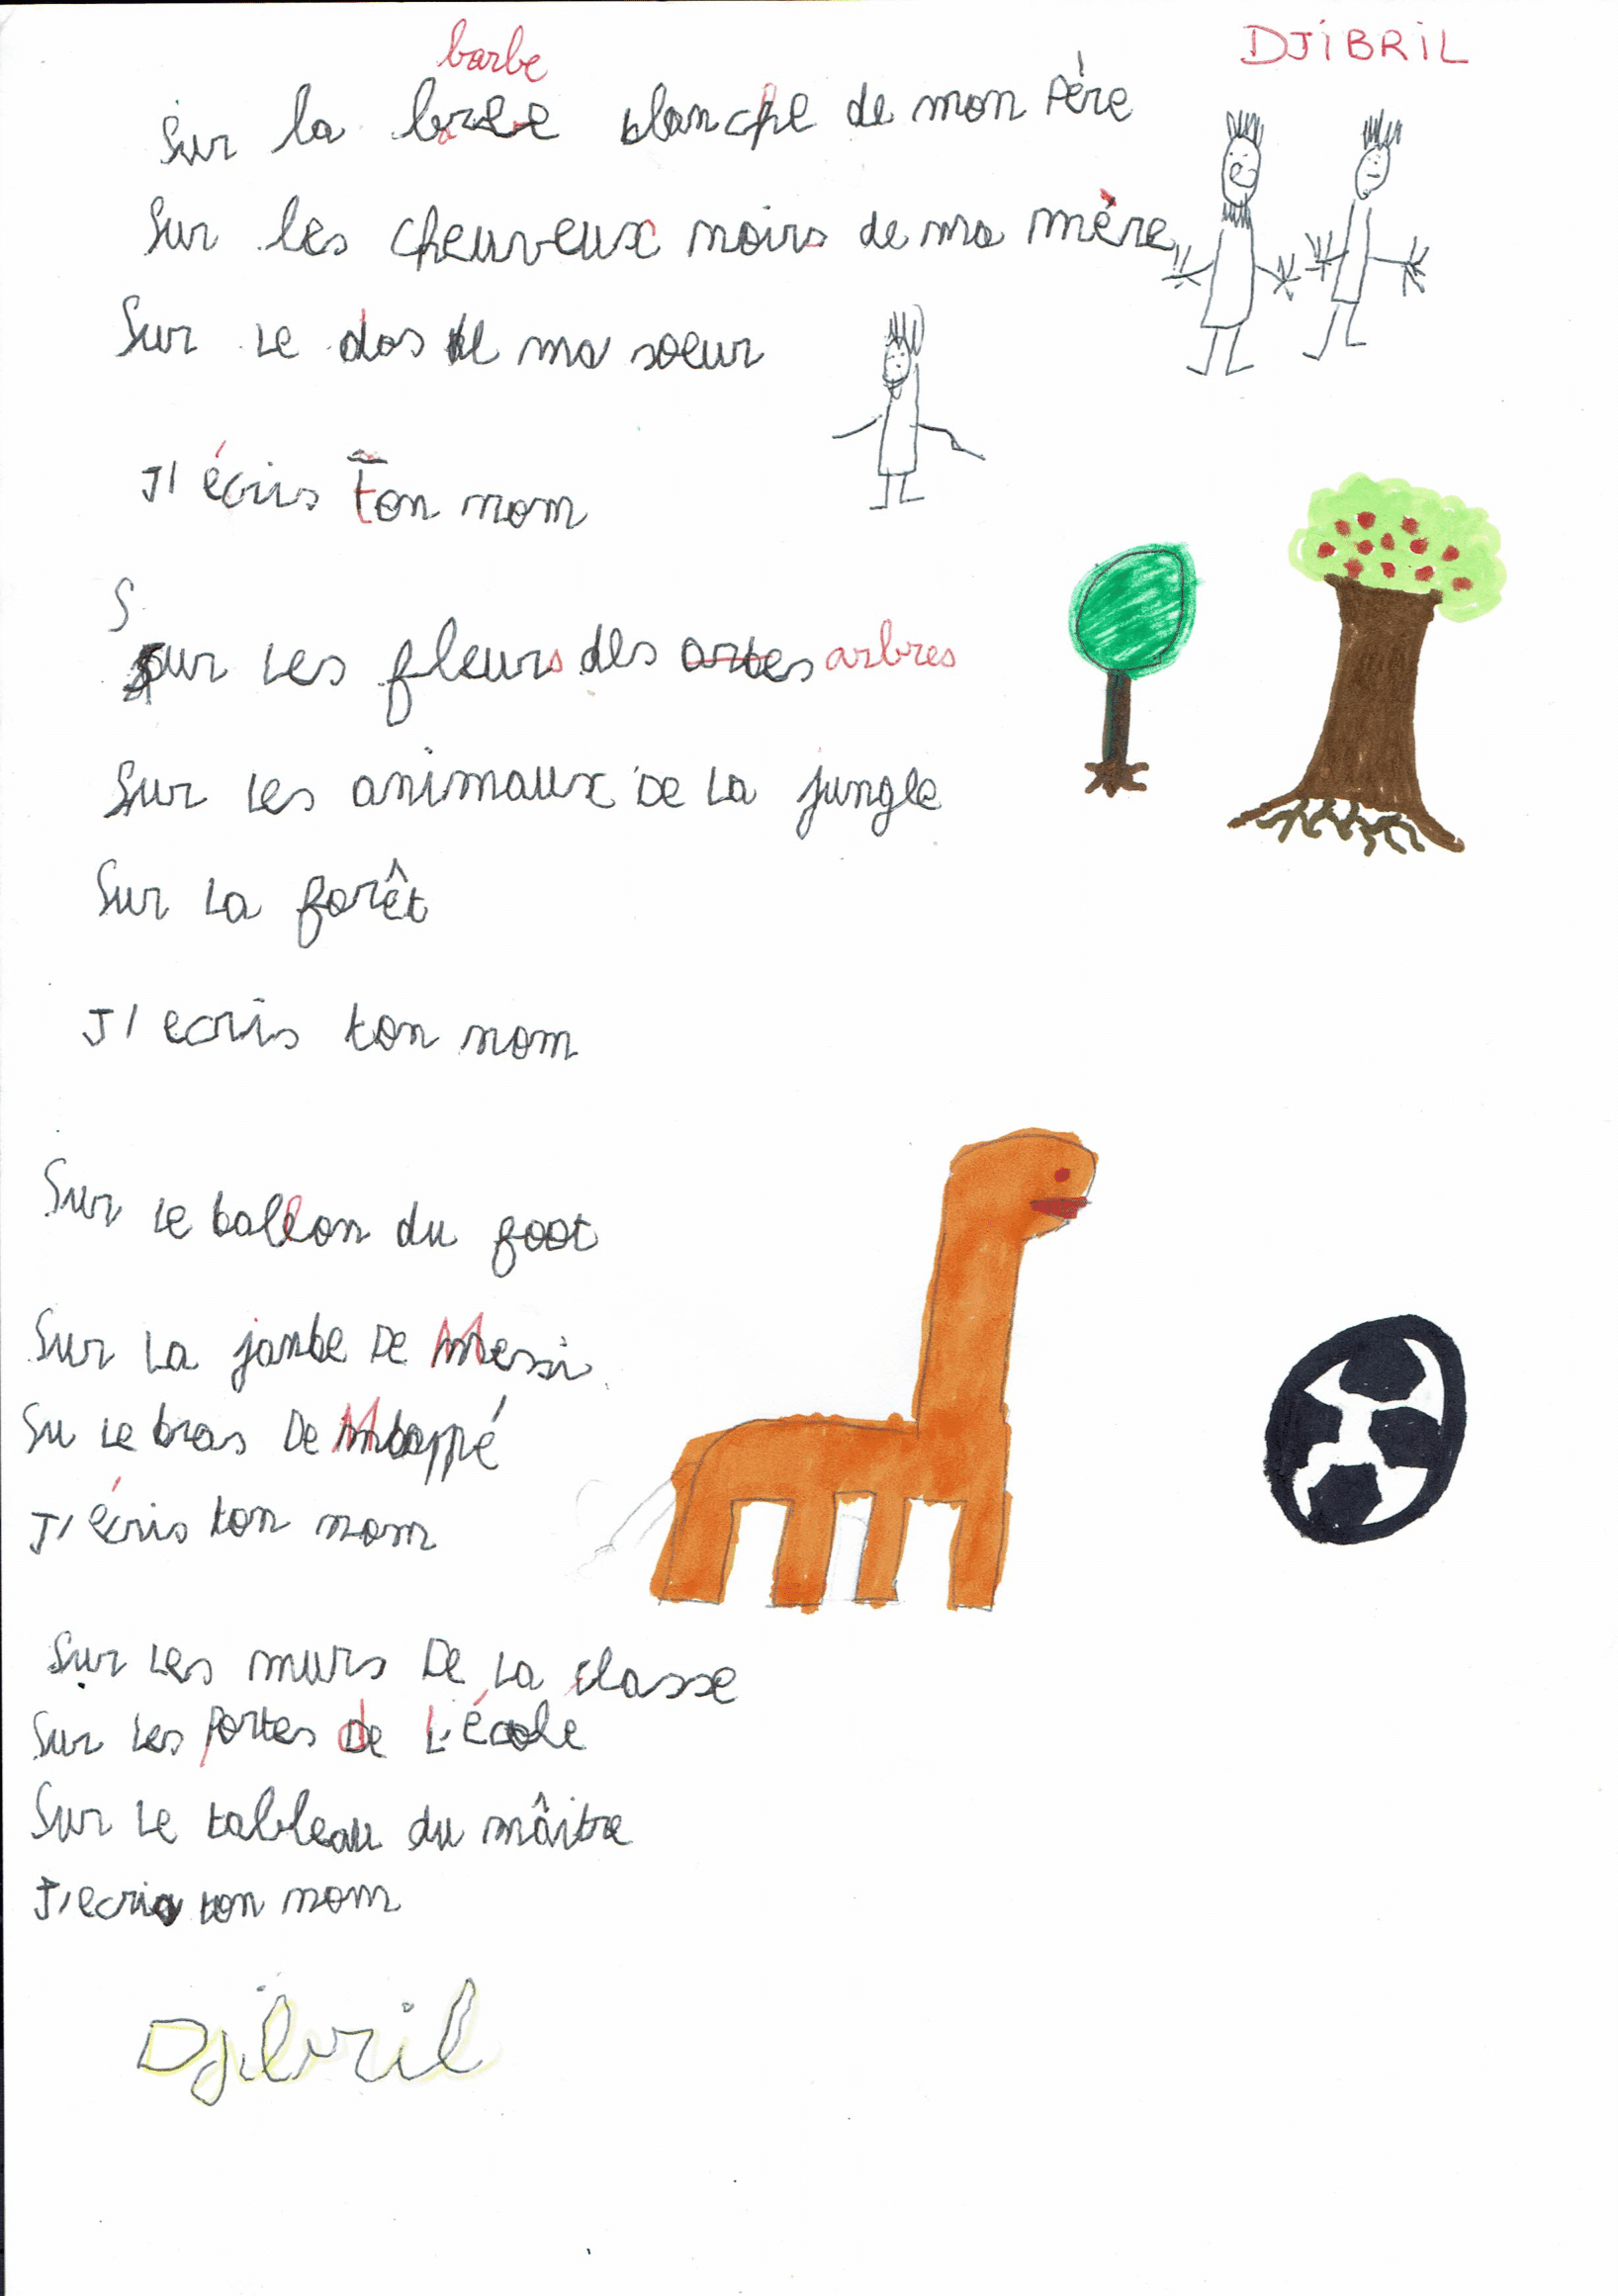 DJiBRiL
barbe
Sur la brbe blanche de mon Père
Sur les cheuveux noirs de ma mère
Sur le dos de ma soeur
J'écris Ton nom
S
Sur Les fleurs des arbes arbres
Sur Les animaux De La jungle
Sur La forêt
J'ecris ton nom
Sur Le ballon du foot
Sur La jambe De Messi
Su Le bras De Mbappé
J'écris ton nom
Sur Les murs De La classe
Sur Les portes de L'école
Sur Le tableau du mâitre
J'ecris ton nom
Djibril